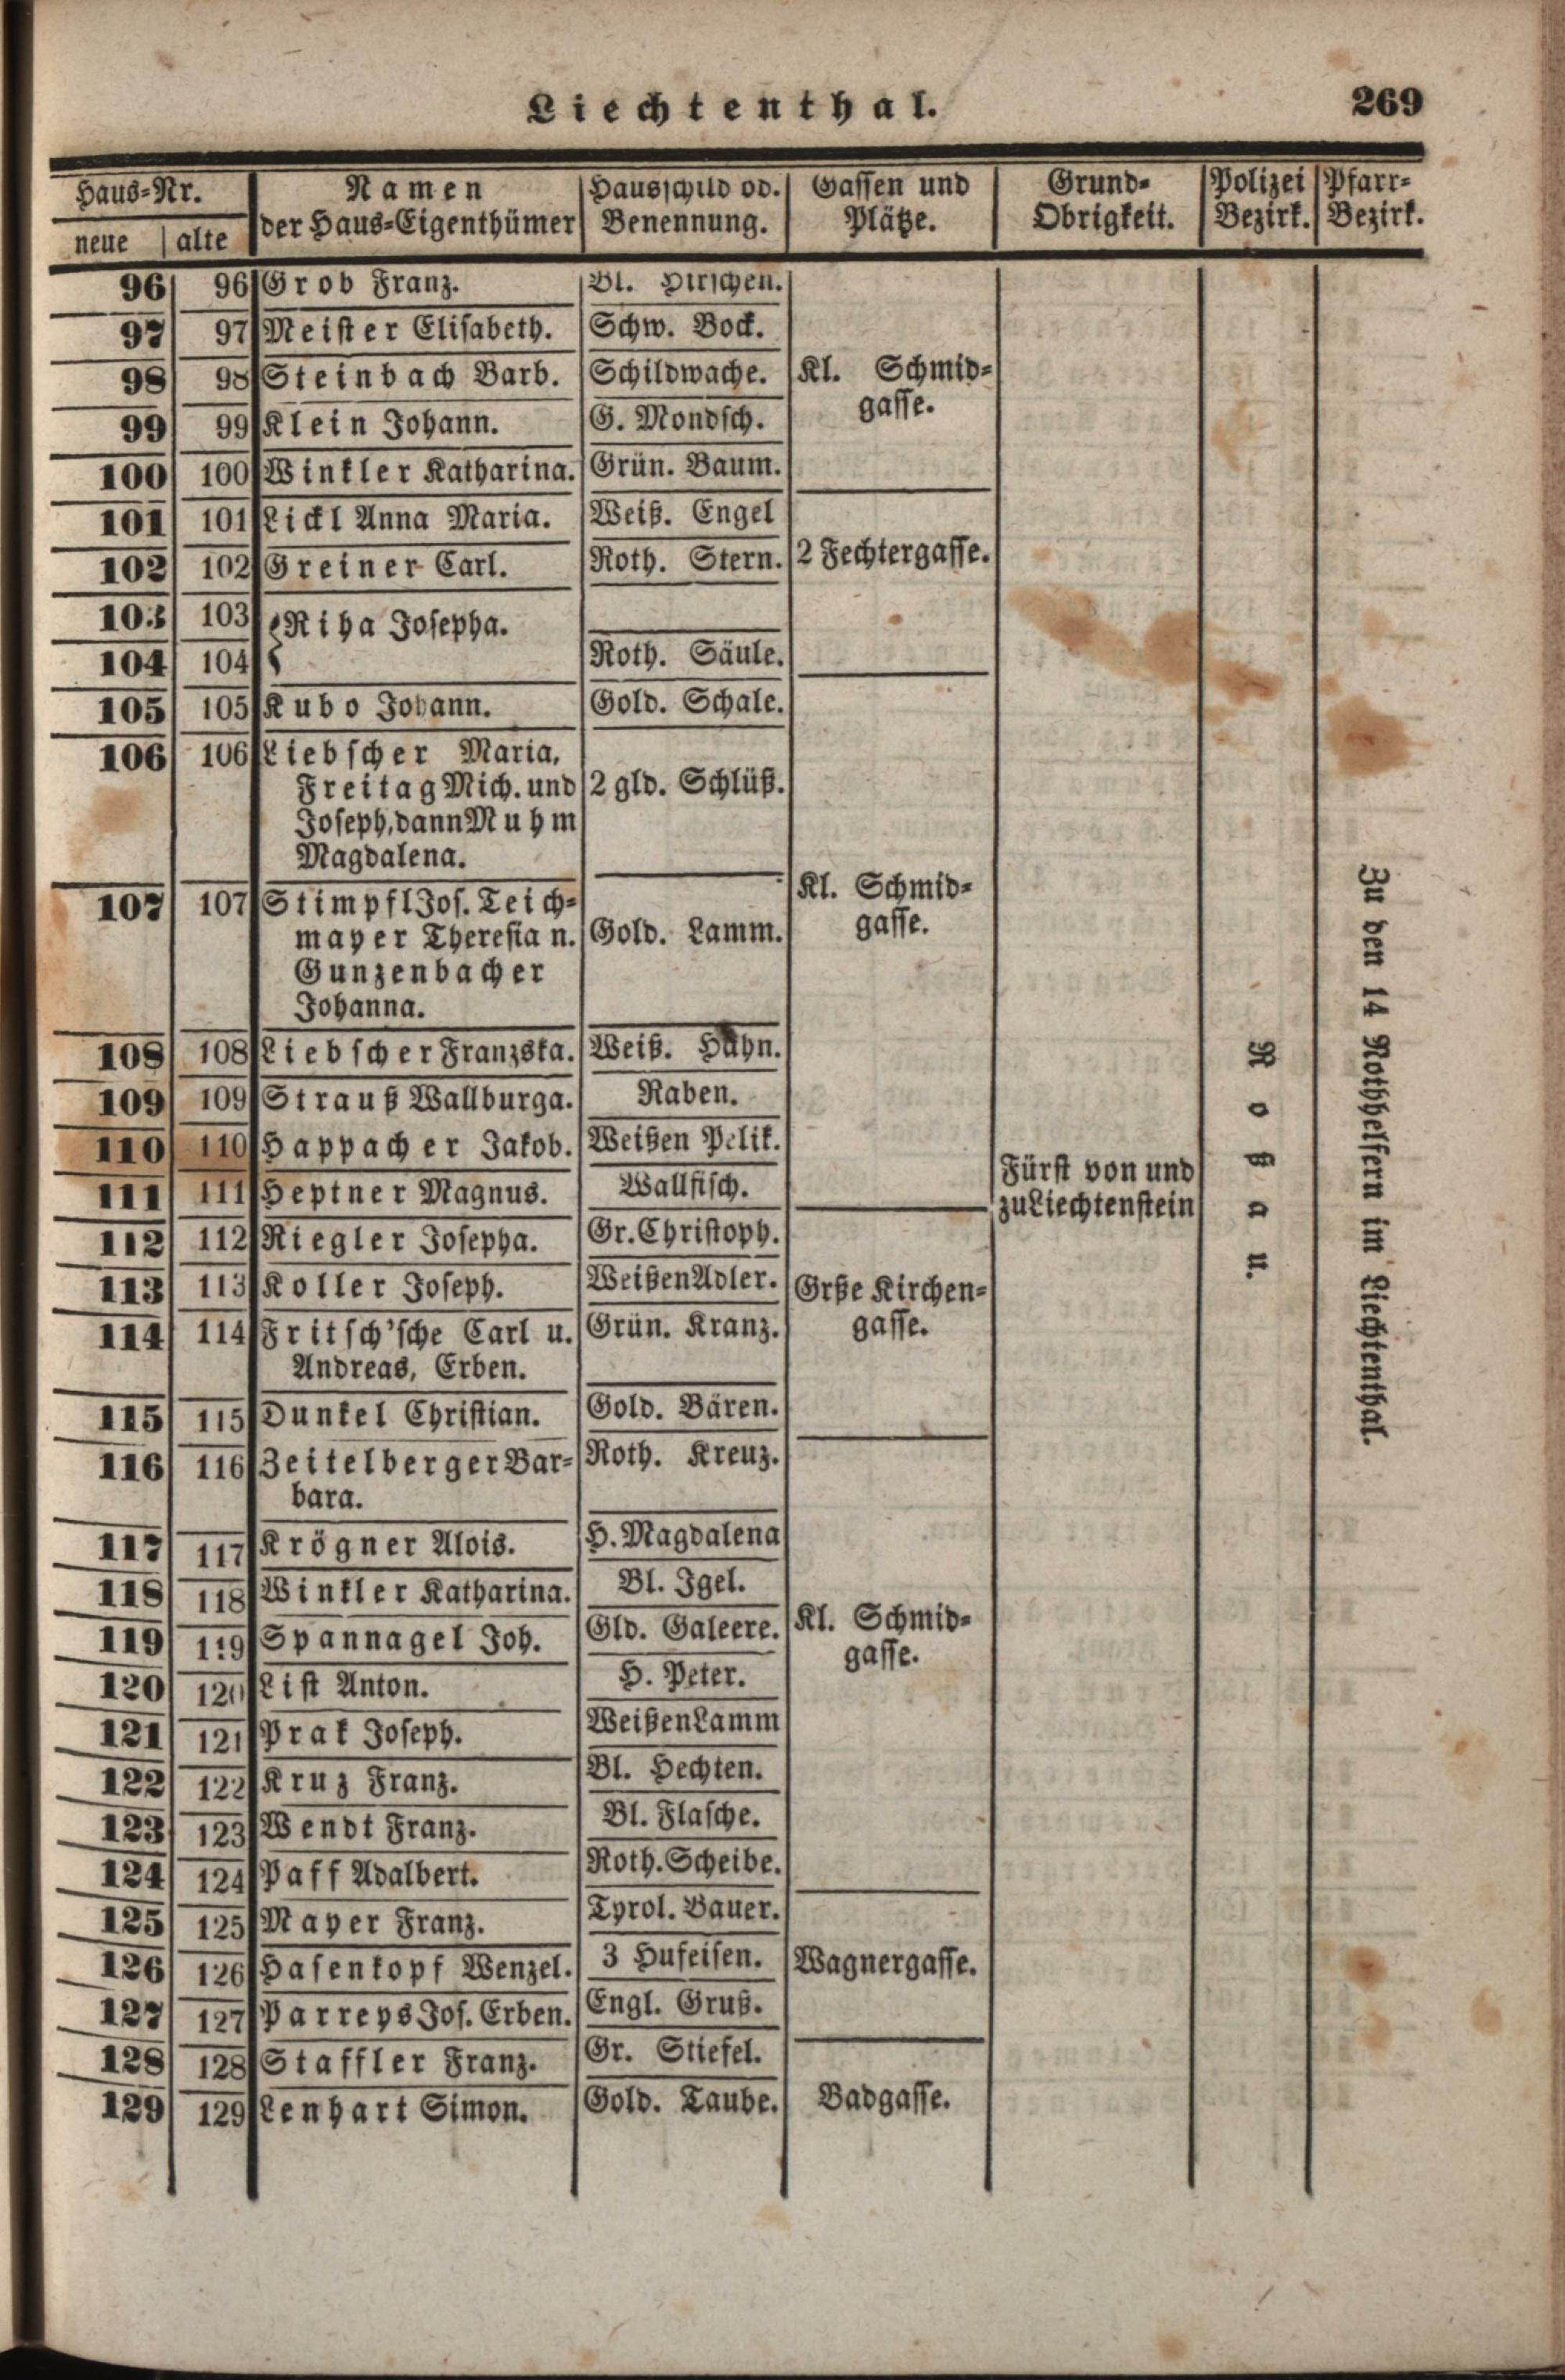 Liechtenthal. 269
Haus-Nr. Namen Hausschild od. Gassen und Grund- Polizei Pfarr-
neue alte der Haus-Eigenthümer Benennung. Plätze. Obrigkeit. Bezirk. Bezirk.
96 96 Grob Franz. Bl. Hirschen.
97 97 Meister Elisabeth. Schw. Bock.
98 98 Steinbach Barb. Schildwache. Kl. Schmid-
99 99 Klein Johann. G. Mondsch. gasse.
100 100 Winkler Katharina. Grün. Baum.
101 101 Lickl Anna Maria. Weiß. Engel
102 102 Greiner Carl. Roth. Stern. 2 Fechtergasse.
103 103 Riha Josepha.
104 104 Roth. Säule.
105 105 Kubo Johann. Gold. Schale.
106 106 Liebscher Maria,
Freitag Mich. und 2 gld. Schlüß.
Joseph, dann Muhm
Magdalena.
107 107 Stimpfl Jos. Teich- Kl. Schmid-
mayer Theresia n. Gold. Lamm. gasse.
Gunzenbacher
Johanna.
108 108 Liebscher Franzska. Weiß. Hahn.
109 109 Strauß Wallburga. Raben.
110 110 Happacher Jakob. Weißen Pelik.
111 111 Heptner Magnus. Wallfisch. Fürst von und
zu Liechtenstein
112 112 Riegler Josepha. Gr. Christoph.
113 113 Koller Joseph. Weißen Adler. Grße Kirchen-
114 114 Fritsch'sche Carl u. Grün. Kranz. gasse.
Andreas, Erben.
115 115 Dunkel Christian. Gold. Bären.
116 116 Zeitelberger Bar- Roth. Kreuz.
bara.
117 117 Krögner Alois. H. Magdalena
118 118 Winkler Katharina. Bl. Igel.
119 119 Spannagel Joh. Gld. Galeere. Kl. Schmid-
gasse.
120 120 List Anton. H. Peter.
121 121 Prak Joseph. Weißen Lamm
122 122 Kruz Franz. Bl. Hechten.
123 123 Wendt Franz. Bl. Flasche.
124 124 Paff Adalbert. Roth. Scheibe.
125 125 Mayer Franz. Tyrol. Bauer.
126 126 Hasenkopf Wenzel. 3 Hufeisen. Wagnergasse.
127 127 Parreys Jos. Erben. Engl. Gruß.
128 128 Staffler Franz. Gr. Stiefel.
129 129 Lenhart Simon. Gold. Taube. Badgasse.
Roßau.
Zu den 14 Nothhelfern im Liechtenthal.